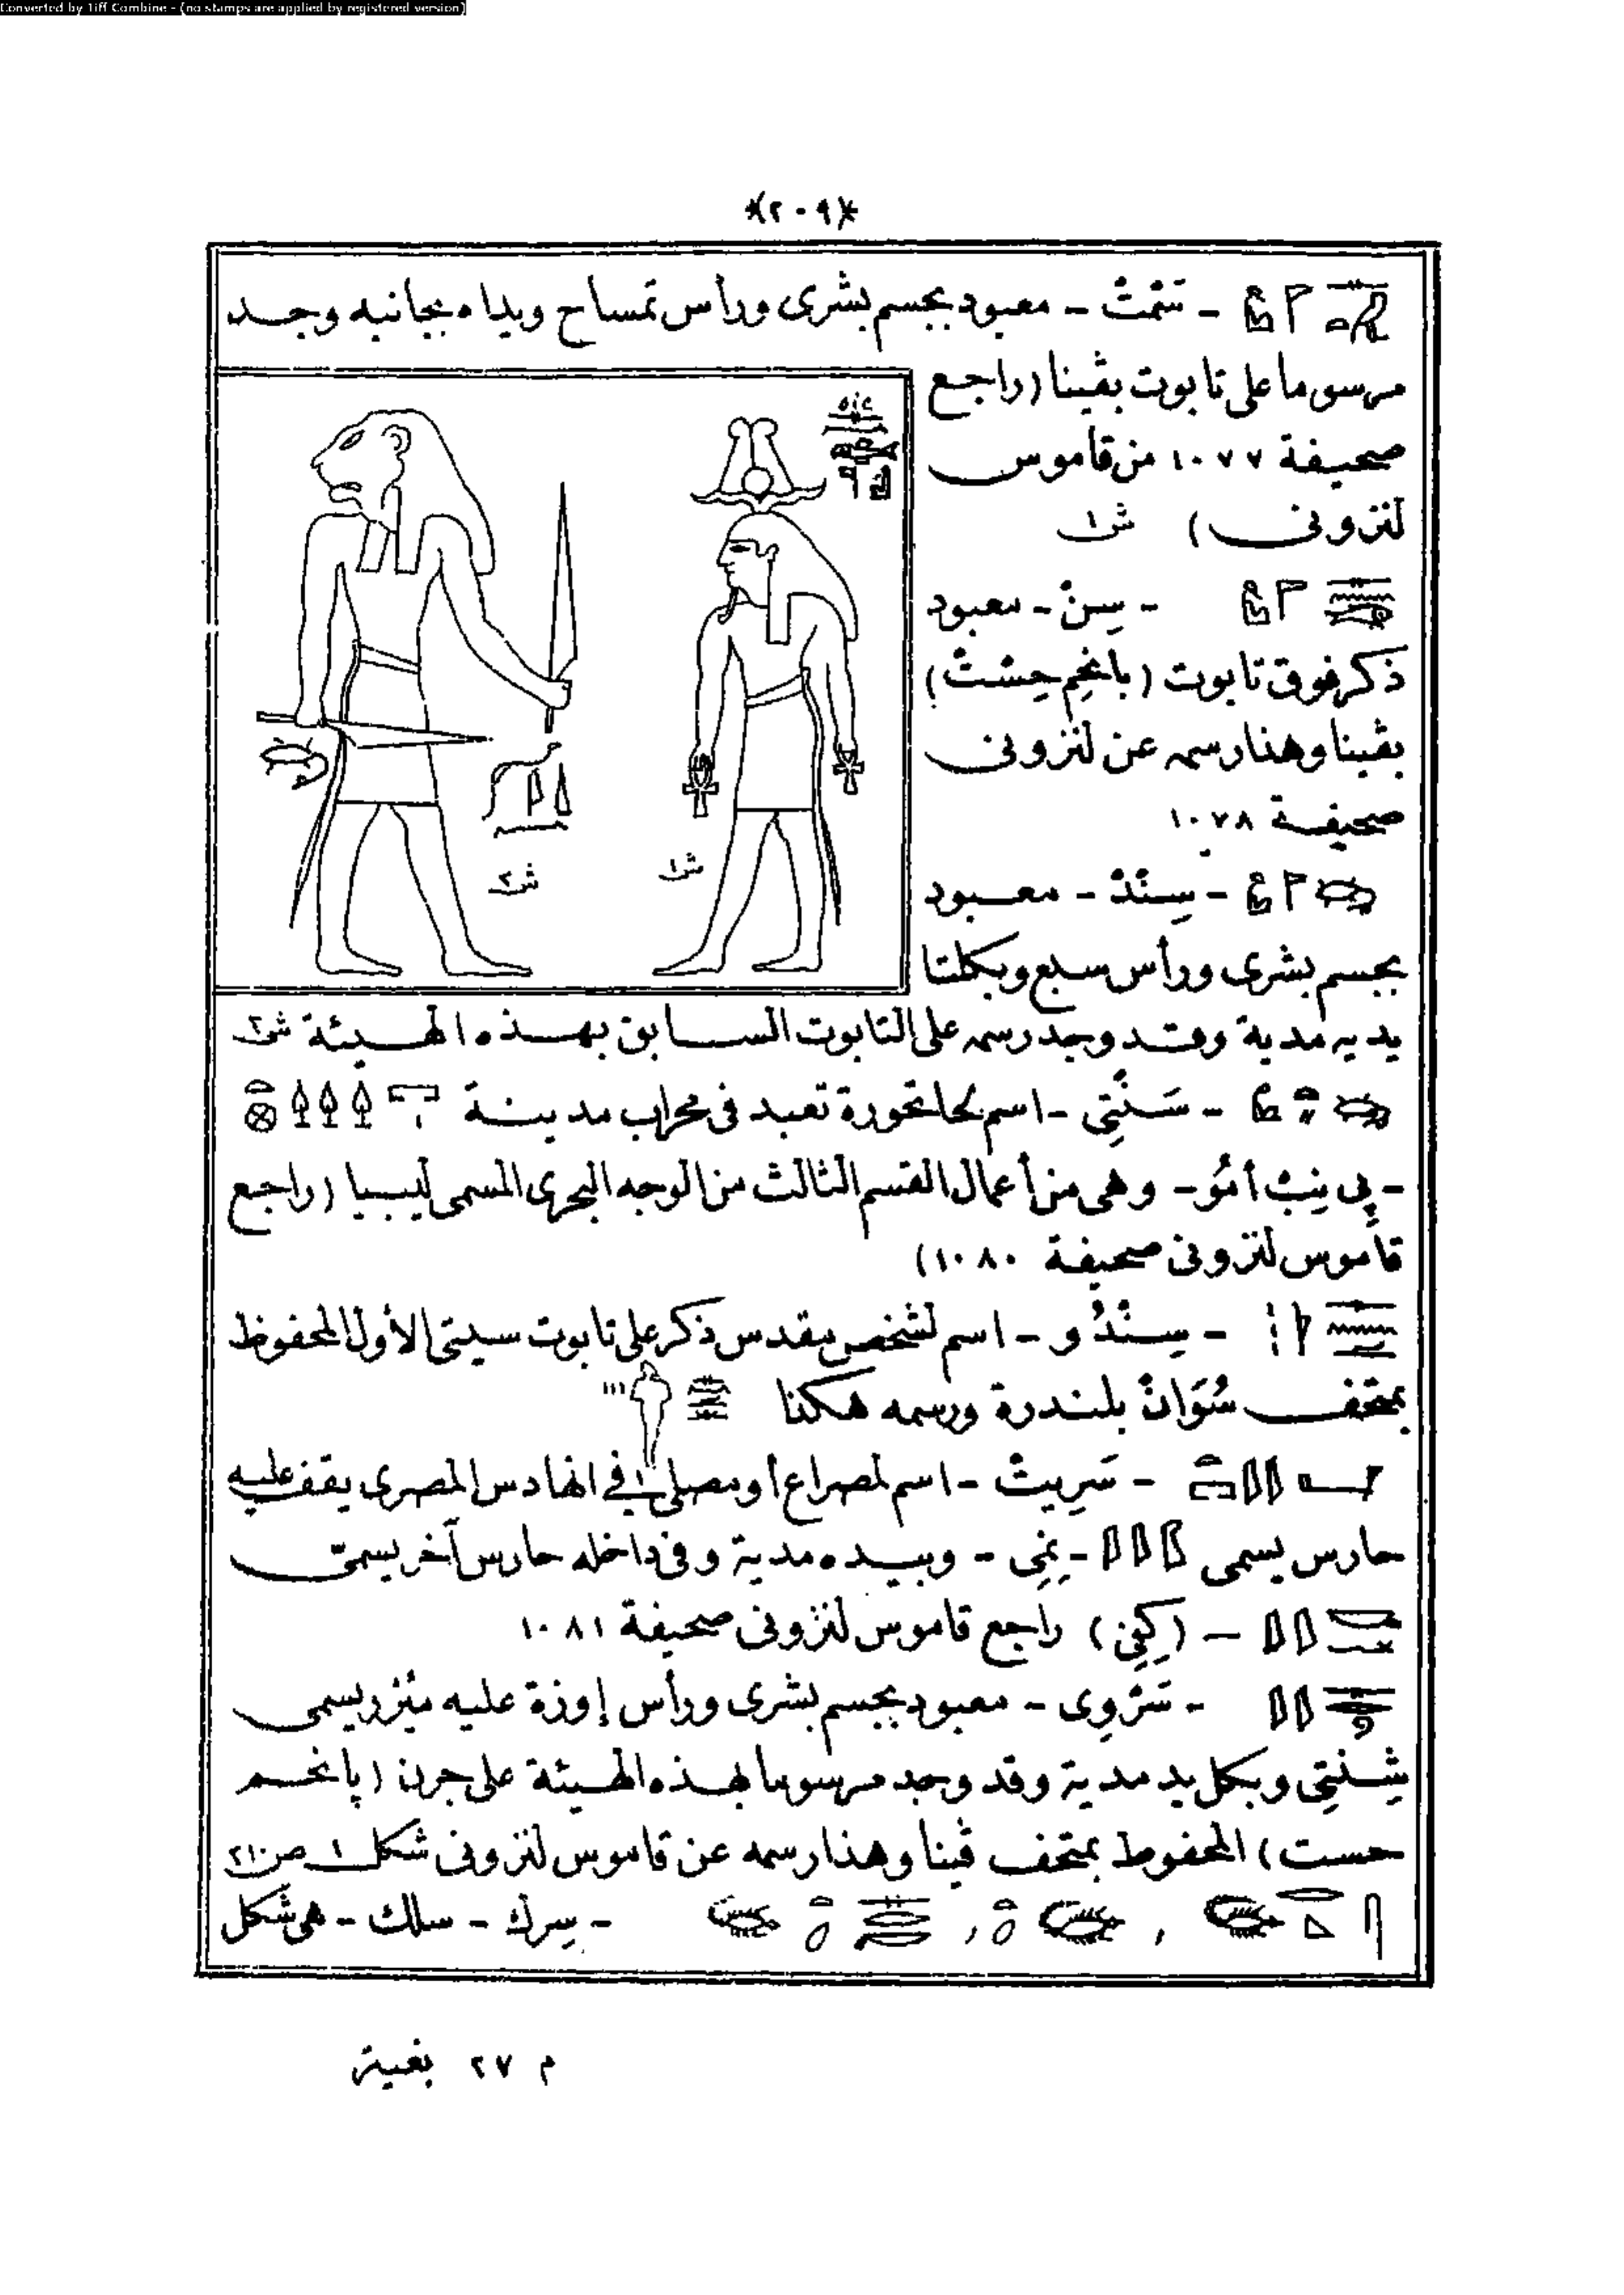 Converted by Tiff Combine - (no stamps are applied by registered version)
*(٢٠٩)*
- سَتْمِتْ - معبود بجسم بشرى ورأس تمساح ويداه بجانبيه وجد
مرسوما على تابوت بڤينا (راجع
صحيفة ١٠٧٧ من قاموس
لنزونى) ش١
- سِنْ - معبود
ذكر فوق تابوت (بانخِم حِسْتْ)
بڤينا وهذا رسمه عن لنزونى
صحيفة ١٠٧٨
- سِنْدْ - معبود
بجسم بشرى ورأس سبع وبكلتا
يديه مدية وقد وجد رسمه على التابوت السابق بهذه الهيئة ش٢
ش١
ش٢
- سَنْتِى - اسم لحاتحورة تعبد فى محراب مدينة
- پِى نِبْ أمُو - وهى من أعمال القسم الثالث من الوجه البحرى المسمى ليبيا (راجع
قاموس لنزونى صحيفة ١٠٨٠)
- سِنْدُو - اسم لشخص مقدس ذكر على تابوت سيتى الأول المحفوظ
بمتحف سُوَانْ بلندرة ورسمه هكذا
- سَرِيتْ - اسم لمصراع أو مصلى فى الهادس المصرى يقف عليه
حارس يسمى - نِمِى - وبيده مدية وفى داخله حارس آخر يسمى
- (كِفِى) راجع قاموس لنزونى صحيفة ١٠٨١
- سَرْوِى - معبود بجسم بشرى ورأس إوزة عليه مئزر يسمى
شِنْتِى وبكل يد مدية وقد وجد مرسوما بهذه الهيئة على جرن (پانخم
حست) المحفوظ بمتحف ڤينا وهذا رسمه عن قاموس لنزونى شكل ١ ص ٢١٠
- سِرك - سلك - هى شكل
م ٢٧ بغية